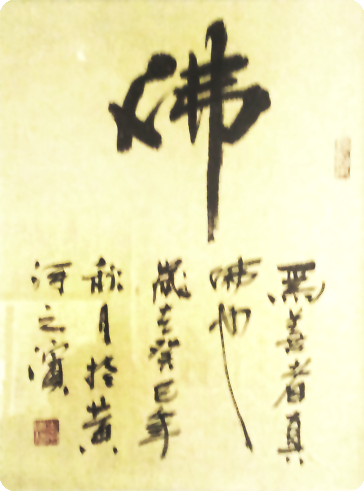 佛
為善者真
佛也
歲在癸巳年
秋月於黄
河之濱